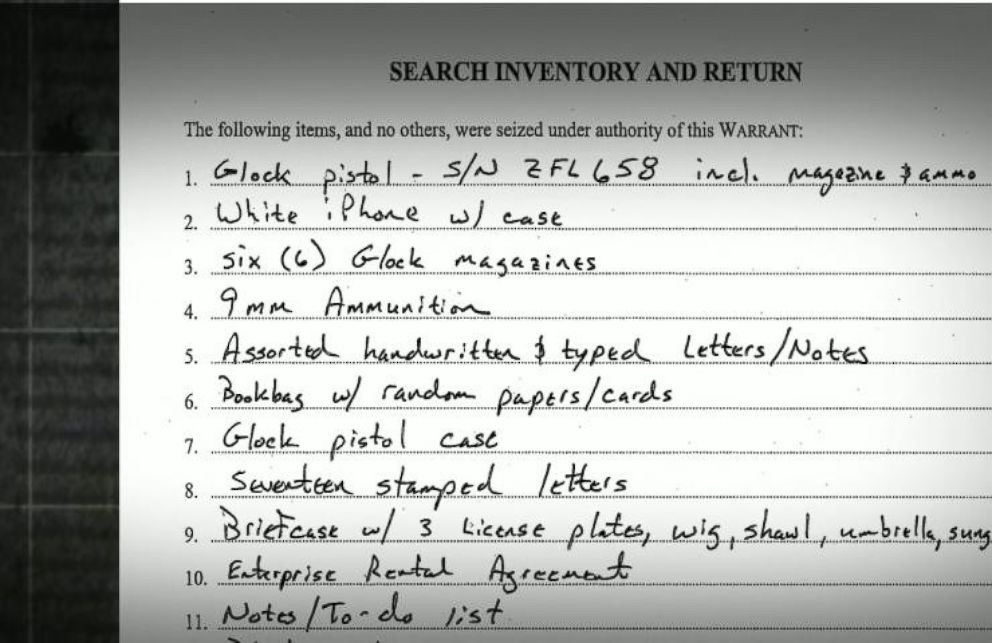 SEARCH INVENTORY AND RETURN
The following items, and no others, were seized under authority of this WARRANT:
1. Glock pistol - S/N ZFL658 incl. magazine & ammo
2. White iPhone w/ case
3. six (6) Glock magazines
4. 9mm Ammunition
5. Assorted handwritten & typed Letters/Notes
6. Bookbag w/ random papers/cards
7. Glock pistol case
8. Seventeen stamped letters
9. Briefcase w/ 3 License plates, wig, shawl, umbrella, sung
10. Enterprise Rental Agreement
11. Notes/To-do list